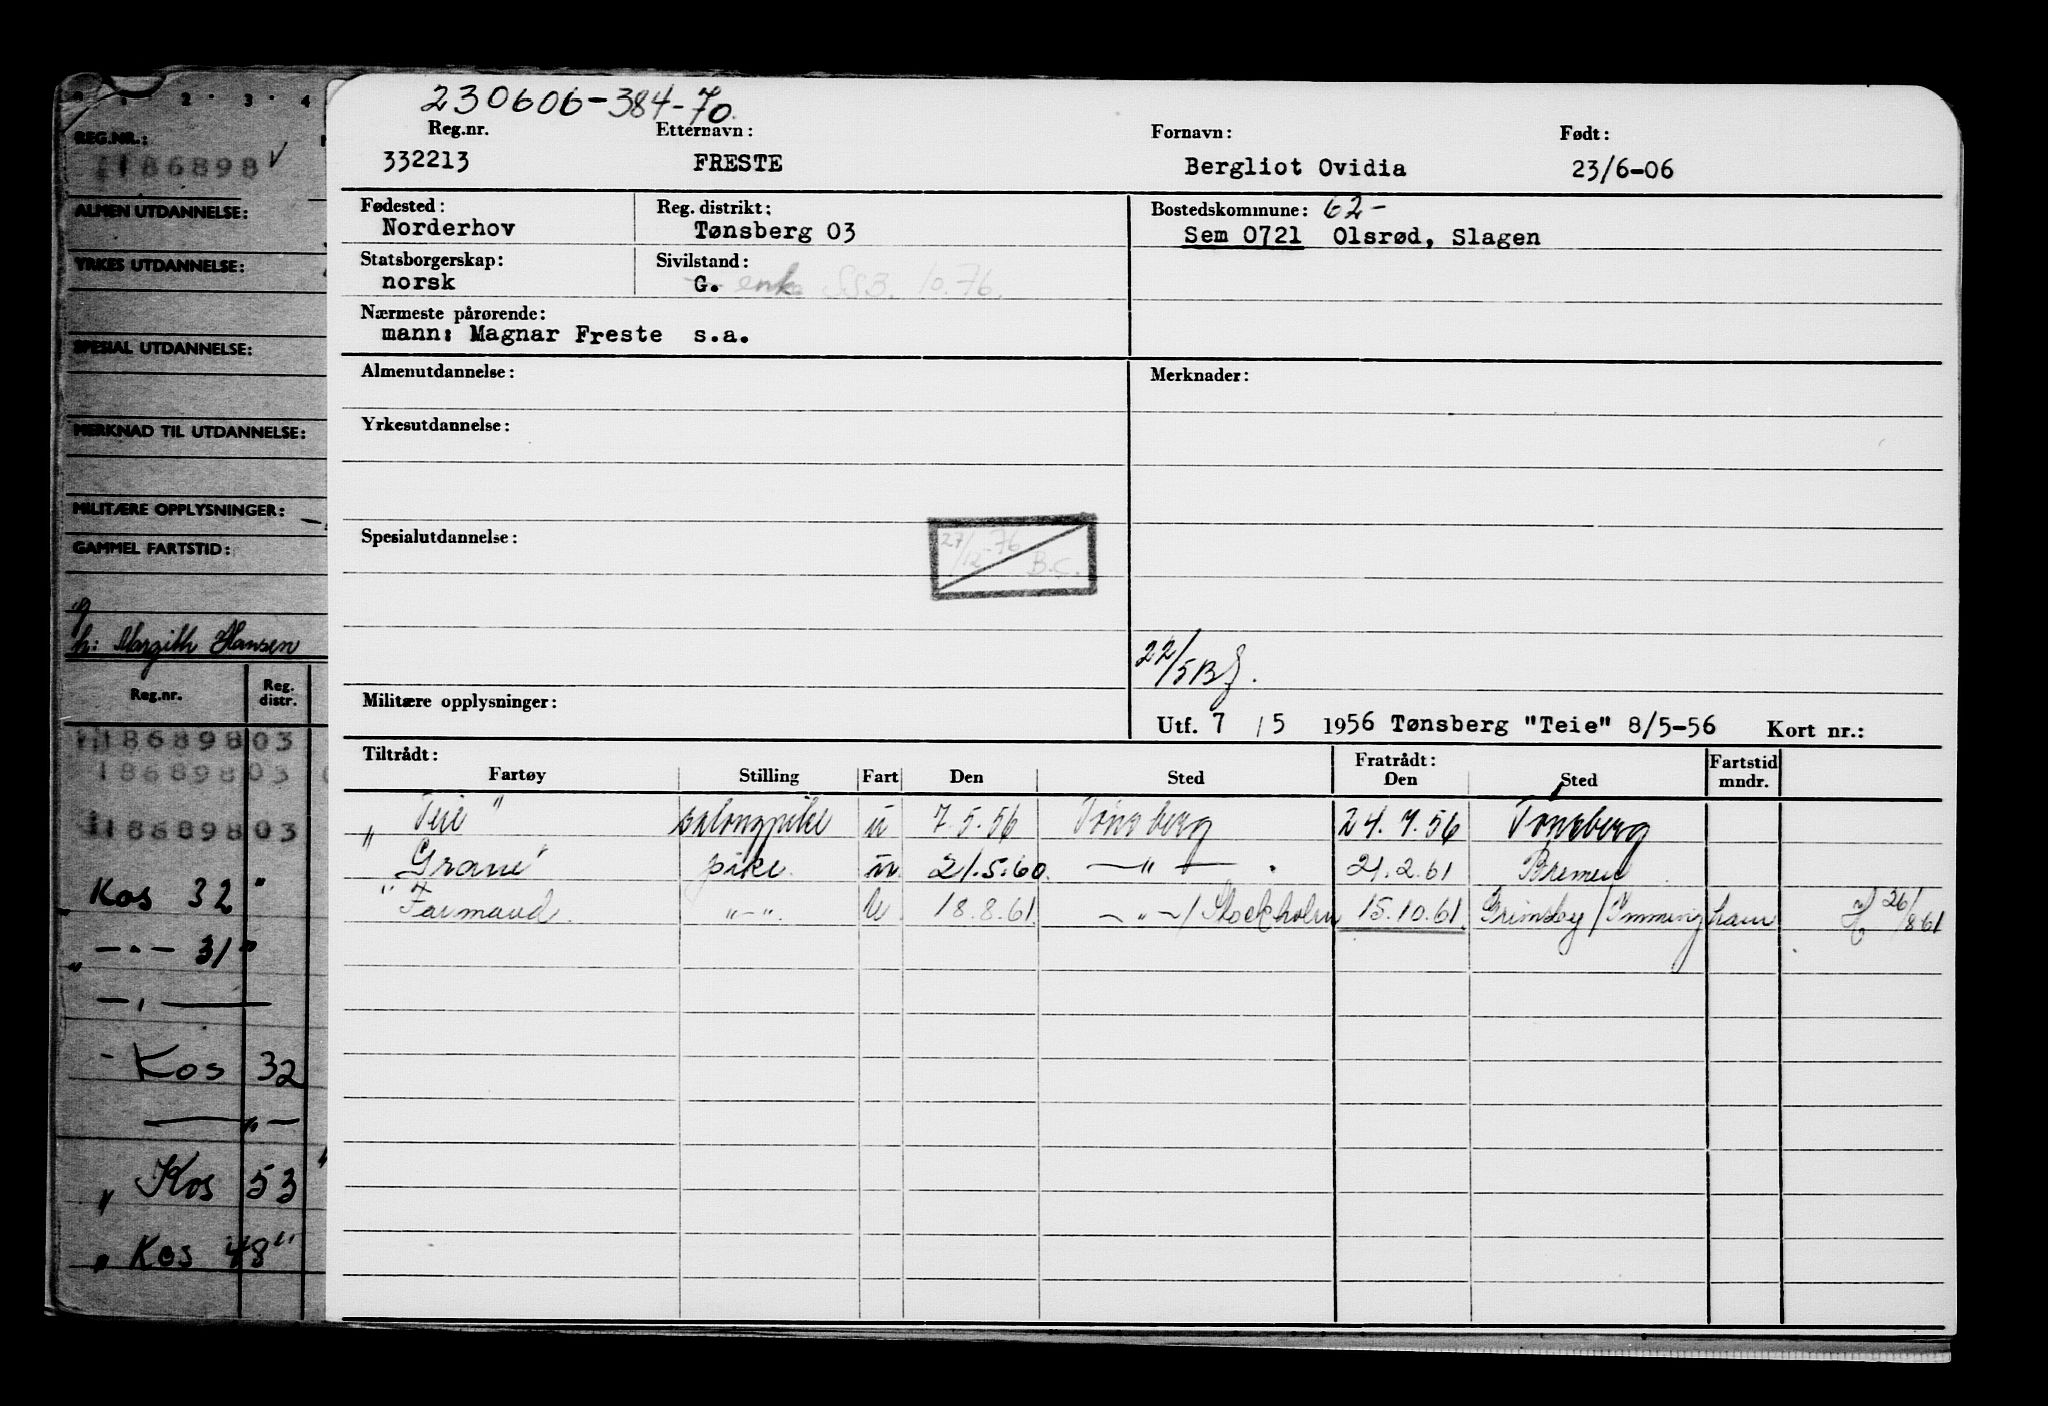 1 2 3 4
REG.NR.:
186898 V
ALMEN UTDANNELSE:
YRKES UTDANNELSE:
SPESIAL UTDANNELSE:
MERKNAD TIL UTDANNELSE:
MILITÆRE OPPLYSNINGER:
GAMMEL FARTSTID:
h: Margith Hansen
Reg.nr. Reg. distr.
18689803
18689803
18689803
Kos 32"
— " — 31"
Kos 32
" Kos 53
" Kos 48"
230606-384-70.
Reg.nr. Etternavn: Fornavn: Født:
332213 FRESTE Bergliot Ovidia 23/6-06
Fødested: Reg. distrikt: Bostedskommune: 62-
Norderhov Tønsberg 03 Sem 0721 Olsrød, Slagen
Statsborgerskap: Sivilstand:
norsk G. enke SSB. 10.76.
Nærmeste pårørende:
mann: Magnar Freste s.a.
Almenutdannelse: Merknader:
Yrkesutdannelse:
Spesialutdannelse: 27/12-76 B.C.
22/5
Militære opplysninger:
Utf. 7 / 5 1956 Tønsberg "Teie" 8/5-56 Kort nr.:
Tiltrådt: Fratrådt: Fartstid
Fartøy Stilling Fart Den Sted Den Sted mndr.
"Teie" salongpike u 7.5.56 Tønsberg 24.7.56 Tønsberg
"Grane" pike u 21.5.60. — " — 21.2.61 Bremen
"Farmand. " — ". 18.8.61. — " — / Stockholm 15.10.61. Grimsby / Immingham 26/861